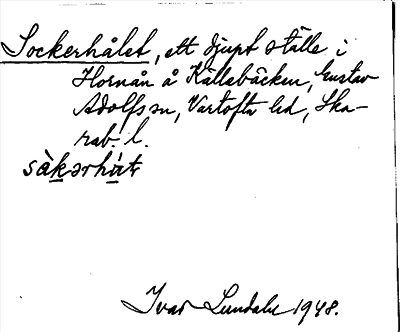 Sockerhålet, ett djupt ställe i
Hornån å Källebäcken, Gustav
Adolfs sn, Vartofta hd, Ska-
rab. l.
Ivar Lundahl 1948.